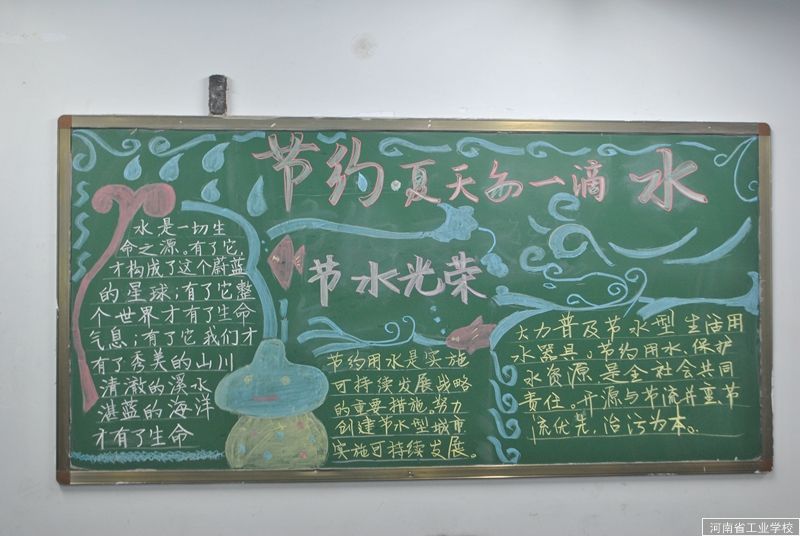 节约·夏天的一滴水
节水光荣
水是一切生
命之源。有了它,
才构成了这个蔚蓝
的星球;有了它整
个世界才有了生命
气息;有了它我们才
有了秀美的山川
清澈的溪水
湛蓝的海洋
才有了生命
节约用水是实施
可持续发展战略
的重要措施。努力
创建节水型城市
实施可持续发展。
大力普及节水型生活用
水器具。节约用水、保护
水资源,是全社会共同
责任。开源与节流并重节
流优先,治污为本。
河南省工业学校